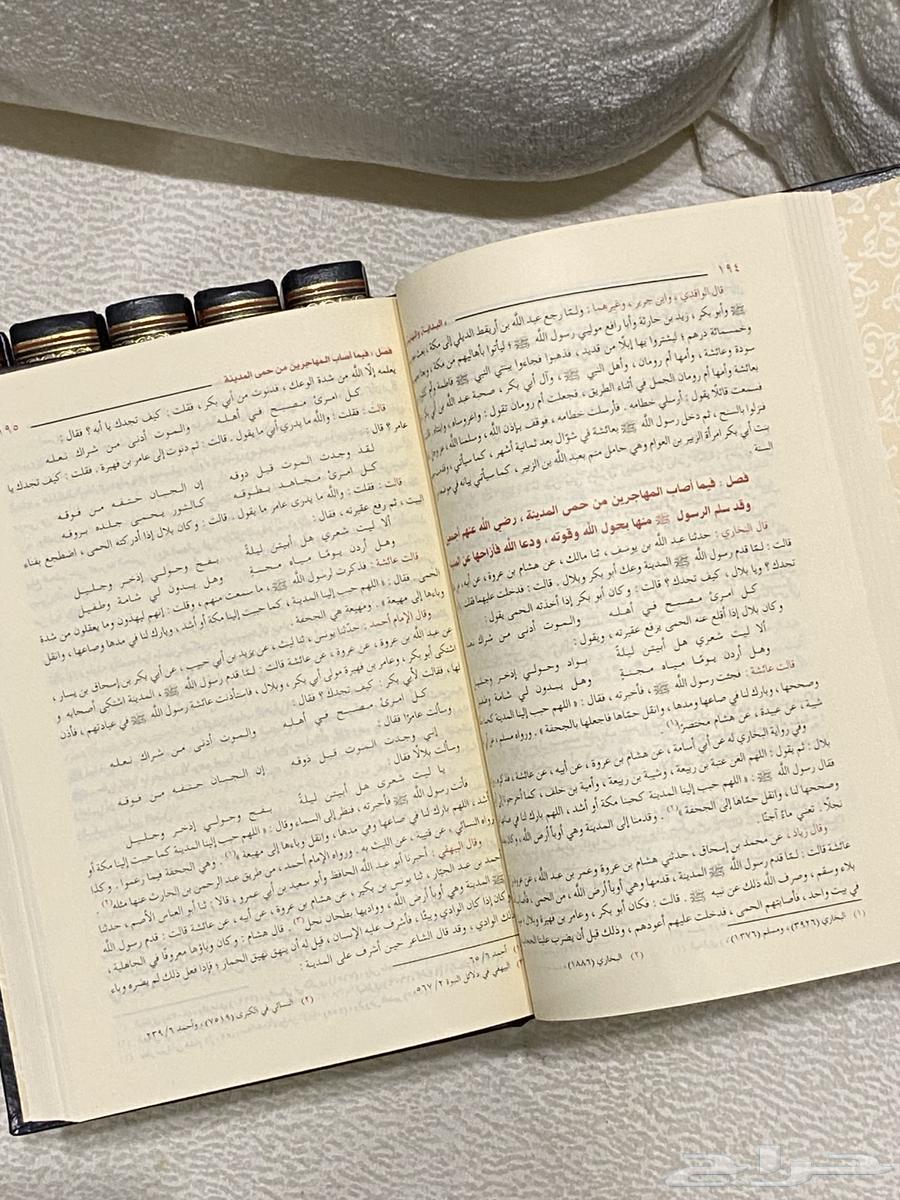 ١٩٤
قال الواقدي ، وابن جرير ، وغيرهما : ولمّا رجع عبد الله بن أريقط الديلي إلى مكة ، بعث
ﷺ وأبو بكر ، زيد بن حارثة وأبا رافع موليي رسول الله ﷺ ؛ ليأتوا بأهاليهم من مكة ،
وخمسمائة درهم ؛ ليشتروا بها إبلًا من قديد ، فذهبوا فجاءوا ببنتي النبي ﷺ فاطمة وأم كلثوم
سودة وعائشة ، وأمها أم رومان ، وأهل النبي ﷺ ، وآل أبي بكر ، صحبة عبد الله بن أبي بكر
بعائشة وأمها أم رومان الجمل في أثناء الطريق ، فجعلت أم رومان تقول : واعروساه ،
فسمعت قائلًا يقول : أرسلي خطامه . فأرسلت خطامه ، فوقف بإذن الله ، وسلمنا الله
فنزلوا بالسنح ، ثم دخل رسول الله ﷺ بعائشة في شوّال بعد ثمانية أشهر ، كما سيأتي ،
بنت أبي بكر امرأة الزبير بن العوام وهي حامل متم بعبد الله بن الزبير ، كما سيأتي بيانه في موضعه
السنة .
فصل : فيما أصاب المهاجرين من حمى المدينة ، رضي الله عنهم أجمعين
وقد سلم الرسول ﷺ منها بحول الله وقوته ، ودعا الله فأزاحها عن
قال البخاري : حدثنا عبد الله بن يوسف ، ثنا مالك ، عن هشام بن عروة ، عن أبيه ،
قالت : لمّا قدم رسول الله ﷺ المدينة وعك أبو بكر وبلال ، قالت : فدخلت عليهما فقلت
تجدك ؟ ويا بلال ، كيف تجدك ؟ قالت : وكان أبو بكر إذا أخذته الحمى يقول :
كل امرئ مصبح في أهله والموت أدنى من شراك نعله
وكان بلال إذا أقلع عنه الحمى يرفع عقيرته ، ويقول :
ألا ليت شعري هل أبيتن ليلةً بواد وحولي إذخر وجليل
وهل أردن يومًا مياه مجنةٍ وهل يبدون لي شامة
قالت عائشة : فجئت رسول الله ﷺ ، فأخبرته ، فقال : « اللهم حبب إلينا المدينة كما
وصححها ، وبارك لنا في صاعها ومدها ، وانقل حمّاها فاجعلها بالجحفة » . ورواه مسلم ،
شيبة ، عن عبيدة ، عن هشام مختصرًا(١) .
وفي رواية البخاري له عن أبي أسامة ، عن هشام بن عروة ، عن أبيه ، عن عائشة ، فذكره
بلال : ثم يقول : اللهم العن عتبة بن ربيعة ، وشيبة بن ربيعة ، وأمية بن خلف ، كما أخرجونا
فقال رسول الله ﷺ : « اللهم حبب إلينا المدينة كحبنا مكة أو أشد ، اللهم بارك لنا في صاعها
وصححها لنا ، وانقل حمّاها إلى الجحفة »(٢) . وقدمنا إلى المدينة وهي أوبأ أرض الله ،
نجلًا . تعني ماءً آجنًا .
وقال زياد ، عن محمد بن إسحاق ، حدثني هشام بن عروة وعمر بن عبد الله ، عن عروة
عائشة قالت : لمّا قدم رسول الله ﷺ المدينة ، قدمها وهي أوبأ أرض الله ، من الحمى ، فأصاب
بلاء وسقم ، وصرف الله ذلك عن نبيه ﷺ . قالت : فكان أبو بكر ، وعامر بن فهيرة وبلال
في بيت واحد ، فأصابتهم الحمى ، فدخلت عليهم أعودهم ، وذلك قبل أن يضرب علينا
(١) البخاري (٣٩٢٦) ، ومسلم (١٣٧٦) .
(٢) البخاري (١٨٨٦) .
فصل : فيما أصاب المهاجرين من حمى المدينة
١٩٥
يعلمه إلّا الله من شدة الوعك ، فدنوت من أبي بكر ، فقلت : كيف تجدك يا أبه ؟ فقال :
كل امرئ مصبح في أهله والموت أدنى من شراك نعله
قالت : فقلت : والله ما يدري أبي ما يقول . قالت : ثم دنوت إلى عامر بن فهيرة ، فقلت : كيف تجدك يا
عامر ؟ قال :
لقد وجدت الموت قبل ذوقه إن الجبان حتفه من فوقه
كل امرئ مجاهد بطوقه كالثور يحمي جلده بروقه
قالت : فقلت : والله ما يدري عامر ما يقول . قالت : وكان بلال إذا أدركته الحمى ، اضطجع بفناء
البيت ، ثم رفع عقيرته ، فقال :
ألا ليت شعري هل أبيتن ليلةً بفخ وحولي إذخر وجليل
وهل أردن يومًا مياه مجنة وهل يبدون لي شامة وطفيل
قالت عائشة : فذكرت لرسول الله ﷺ ، ما سمعت منهم ، وقلت : إنهم ليهذون وما يعقلون من شدة
الحمى . فقال : « اللهم حبب إلينا المدينة ، كما حببت إلينا مكة أو أشد ، وبارك لنا في مدها وصاعها ، وانقل
وباءها إلى مهيعة » . ومهيعة هي الجحفة .
وقال الإمام أحمد : حدّثنا يونس ، ثنا ليث ، عن يزيد بن أبي حبيب ، عن أبي بكر بن إسحاق بن يسار ،
عن عبد الله بن عروة ، عن عروة ، عن عائشة قالت : لمّا قدم رسول الله ﷺ ، المدينة اشتكى أصحابه و
اشتكى أبو بكر ، وعامر بن فهيرة مولى أبي بكر ، وبلال ، فاستأذنت عائشة رسول الله ﷺ في عيادتهم ، فأذن
لها ، فقالت لأبي بكر : كيف تجدك ؟ فقال :
كل امرئ مصبح في أهله والموت أدنى من شراك نعله
وسألت عامرًا فقال :
إني وجدت الموت قبل ذوقه إن الجبان حتفه من فوقه
وسألت بلالًا فقال
يا ليت شعري هل أبيتن ليلةً بفخ وحولي إذخر وجليل
فأتت رسول الله ﷺ فأخبرته ، فنظر إلى السماء وقال : « اللهم حبب إلينا المدينة كما حببت إلينا مكة أو
أشد ، اللهم بارك لنا في صاعها وفي مدها ، وانقل وباءها إلى مهيعة »(١) . وهي الجحفة فيما زعموا . وكذا
رواه النسائي ، عن قتيبة ، عن الليث به . ورواه الإمام أحمد ، من طريق عبد الرحمن بن الحارث عنها مثله(٢) .
وقال البيهقي : أخبرنا أبو عبد الله الحافظ وأبو سعيد بن أبي عمرو ، قالا : ثنا أبو العباس الأصم ، حدثنا
أحمد بن عبد الجبار ، ثنا يونس بن بكير ، عن هشام بن عروة ، عن أبيه ، عن عائشة قالت : قدم رسول الله
ﷺ المدينة وهي أوبأ أرض الله ، وواديها بطحان نجل(٣) . قال هشام : وكان وباؤها معروفًا في الجاهلية ،
وكان إذا كان الوادي وبيئًا ، فأشرف عليه الإنسان ، قيل له أن ينهق نهيق الحمار ؛ فإذا فعل ذلك لم يضره وباء
ذلك الوادي ، وقد قال الشاعر حين أشرف على المدينة :
أحمد ٦/ ٦٥
(٢) النسائي في الكبرى (٧٥١٩) ، وأحمد ٦/ ٢٣٩
البيهقي في دلائل النبوة ٢/ ٥٦٧ .
حراج